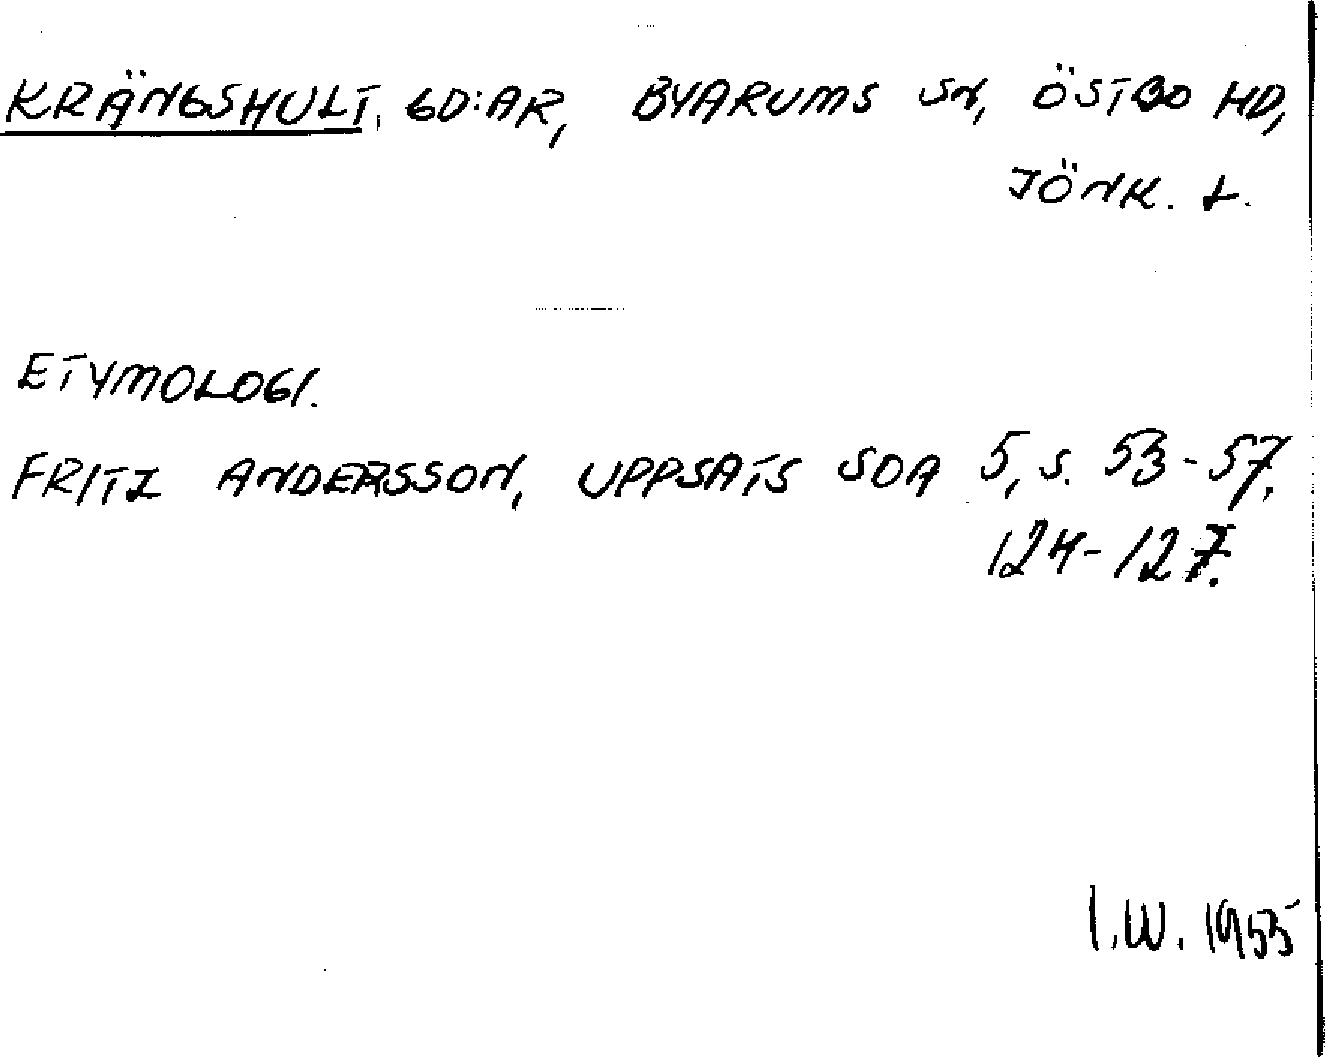 KRÄNGSHULT, GD:AR, BYARUMS SN, ÖSTBO HD,
JÖNK. L.
ETYMOLOGI.
FRITZ ANDERSSON, UPPSATS SOA 5, s. 53-57,
124-127.
I.W. 1955